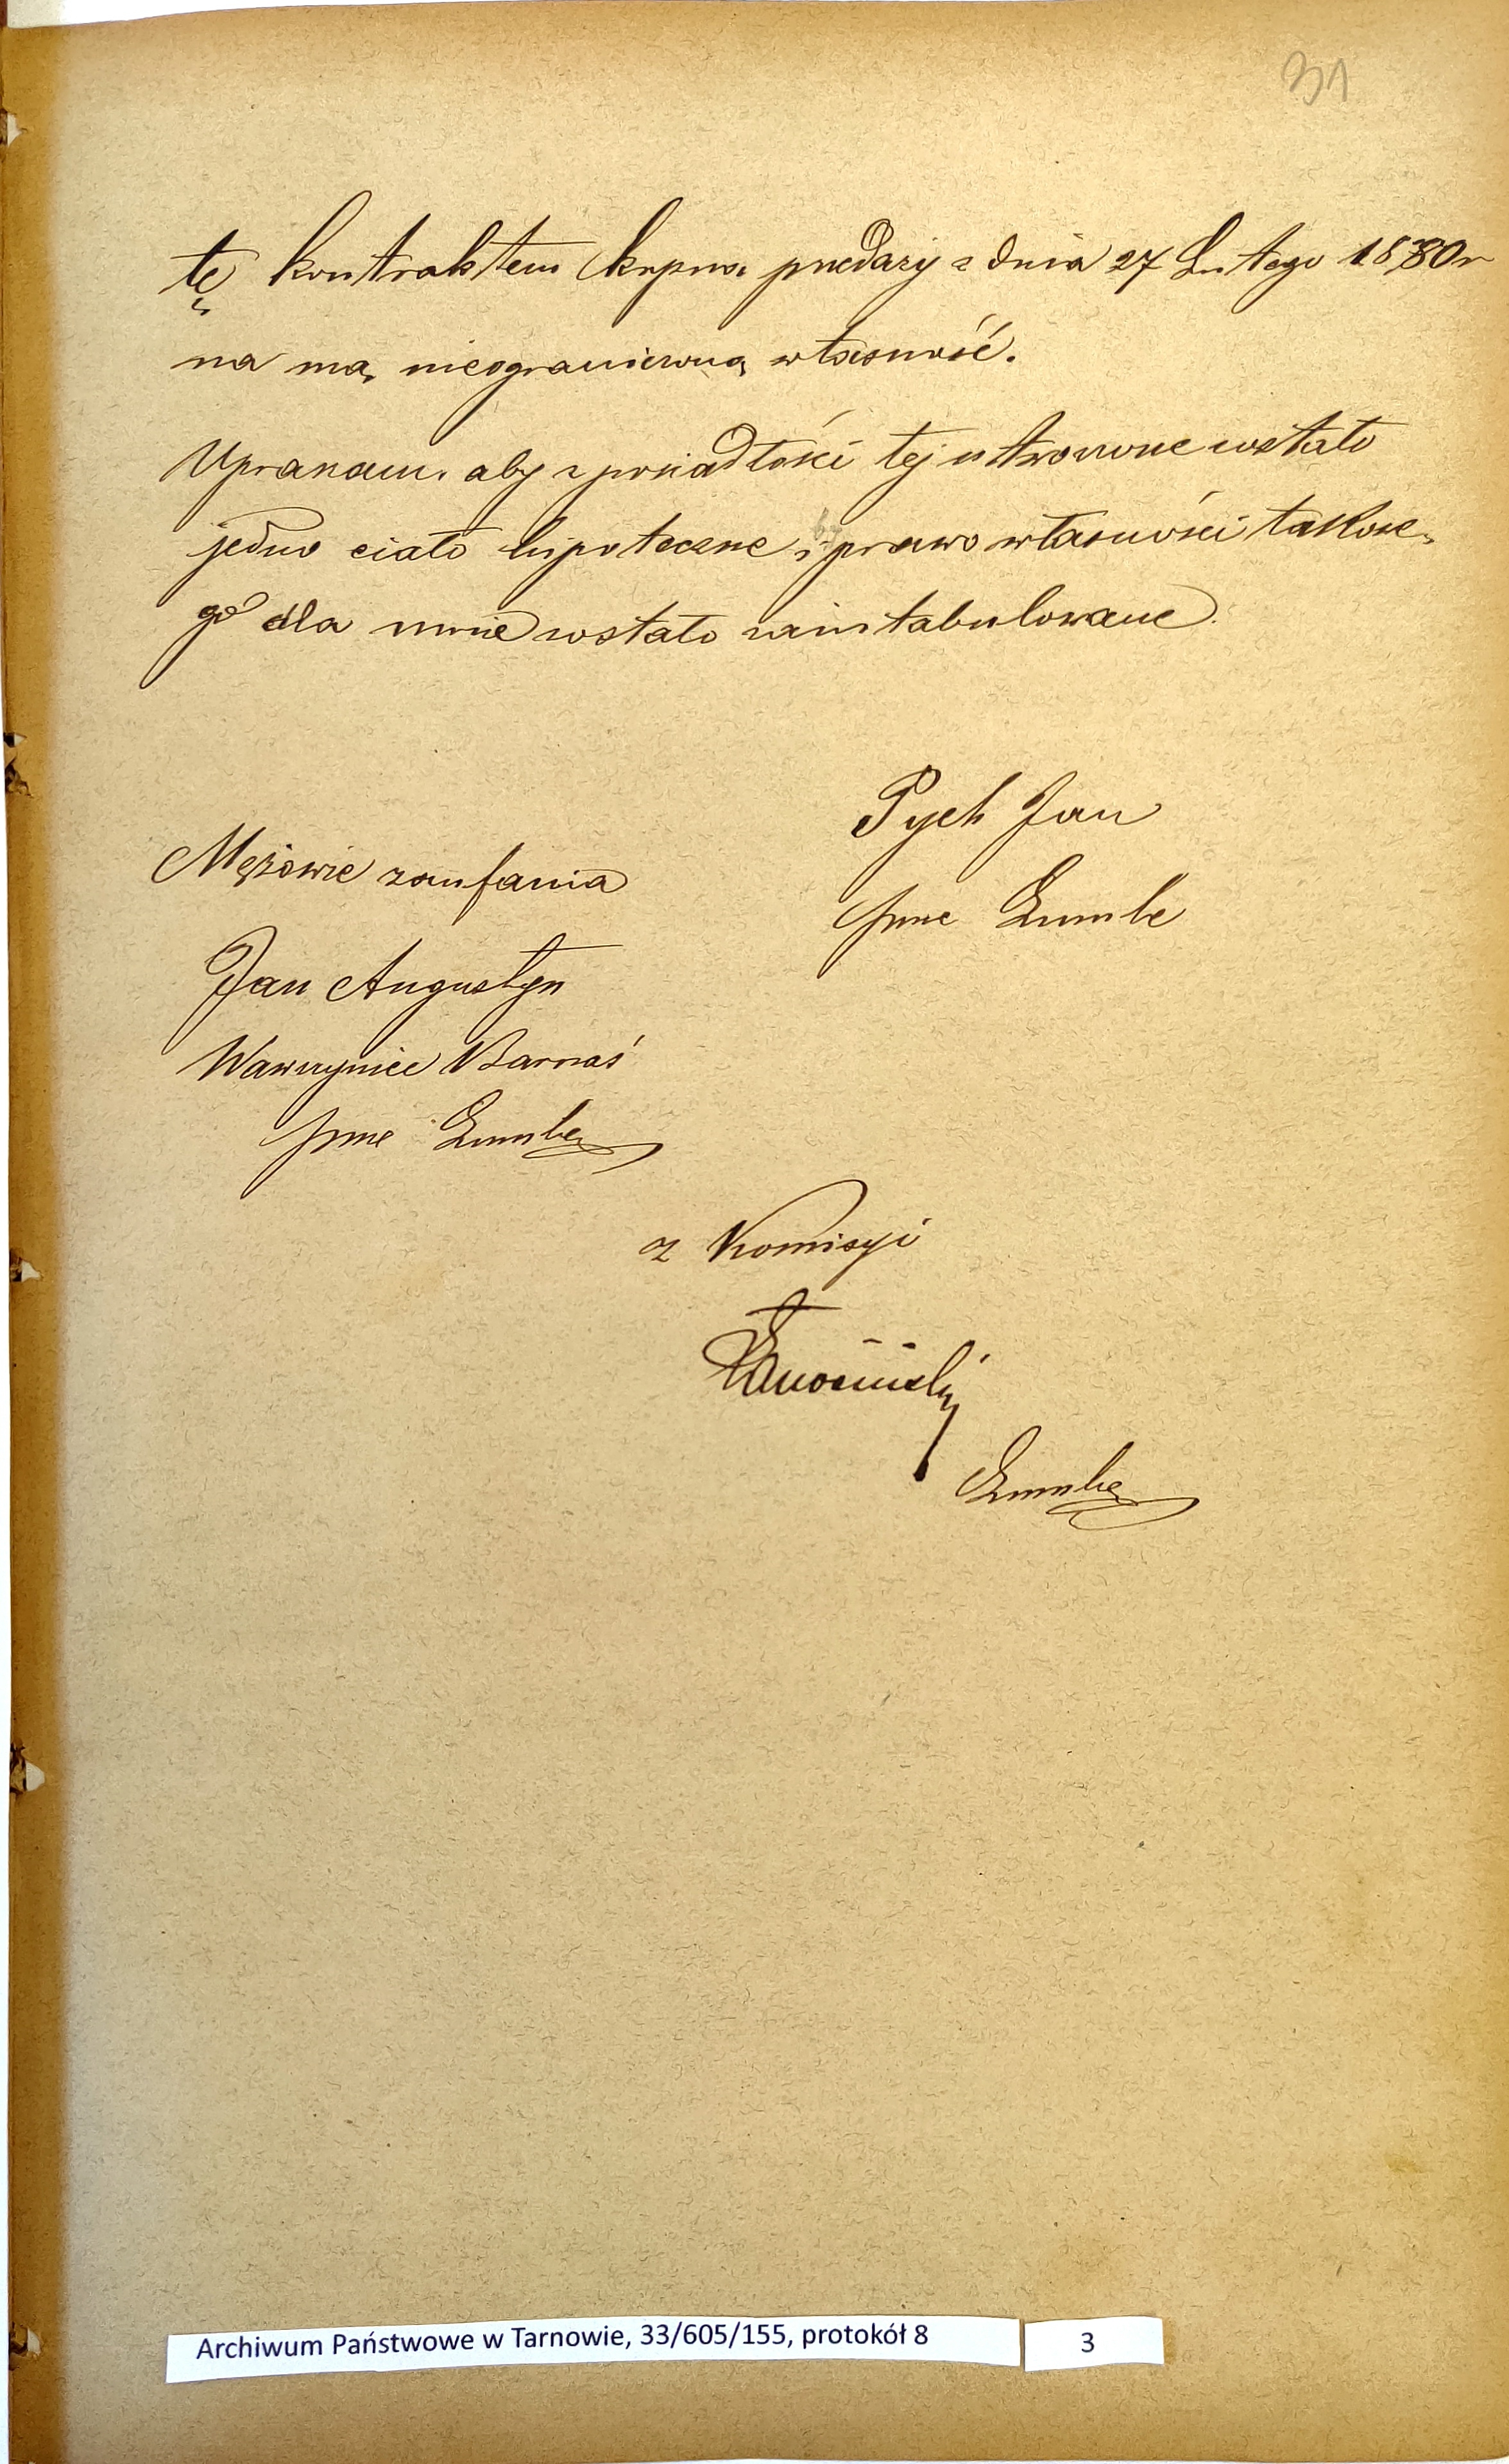 31
tę kontraktem kupna przedaży z dnia 27 Lutego 1880 r
na mą nieograniczoną własność.
Upraszam, aby z posiadłości tej utworzone zostało
jedno ciało hipoteczne i by prawo własności takowe-
go dla mnie zostało zaintabulowane.
Pych Jan
Mężowie zaufania
Jan Augustyn
Wawrzyniec Barnaś
z Komisyi
Archiwum Państwowe w Tarnowie, 33/605/155, protokół 8
3